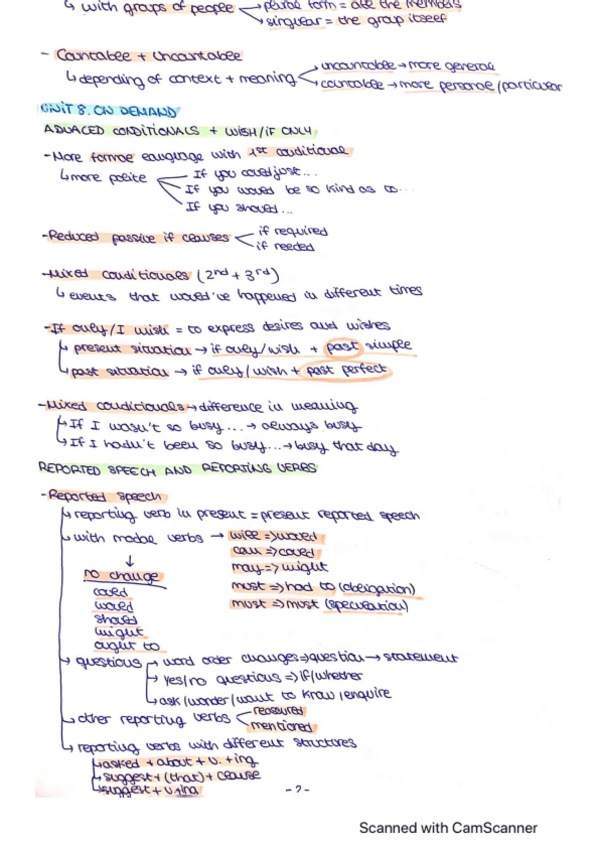 ↳ with groups of people → plural form = all the members
→ singular = the group itself
- Countable + Uncountable
↳ depending of context + meaning → uncountable → more general
→ countable → more personal/particular
UNIT 8. ON DEMAND
ADVACED CONDITIONALS + WISH/IF ONLY
- More formal language with 1st conditional
↳ more polite — If you could just...
If you would be so kind as to...
If you should...
- Reduced passive if clauses < if required
if needed
- Mixed conditionals (2nd + 3rd)
↳ events that would've happened in different times
- If only/I wish = to express desires and wishes
↳ present situation → if only/wish + past simple
↳ past situation → if only/wish + past perfect
- Mixed conditionals → difference in meaning
↳ If I wasn't so busy... → always busy
↳ If I hadn't been so busy... → busy that day
REPORTED SPEECH AND REPORTING VERBS
- Reported speech
↳ reporting verb in present = present reported speech
↳ with modal verbs → will => would
can => could
may => might
must => had to (obligation)
must => must (speculation)
↓
no change
could
would
should
might
ought to
↳ questions → word order changes => question → statement
→ Yes/no questions => If/whether
↳ ask/wonder/want to know/enquire
↳ other reporting verbs < reasured
mentioned
↳ reporting verbs with different structures
↳ asked + about + v. + ing
↳ suggest + (that) + clause
↳ suggest + v + ing
- 2 -
Scanned with CamScanner